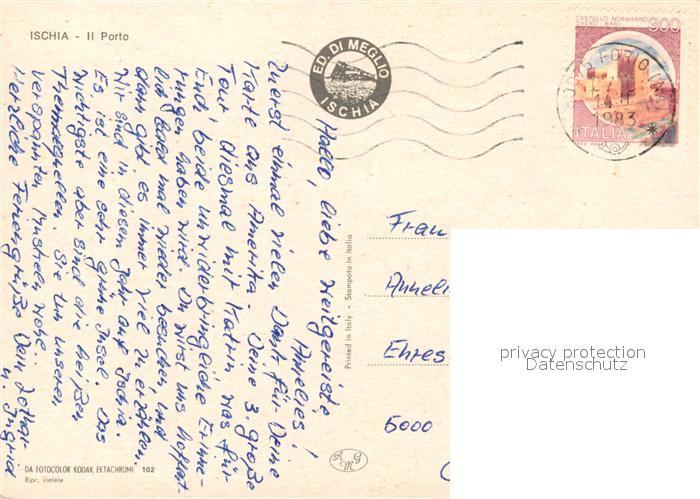 ISCHIA - Il Porto
ED. DI MEGLIO
ISCHIA
CASTELLO NORMANNO
SVEVO - BARI
300
ITALIA
FORIO
1983
Hallo, liebe Weitgereiste,
Annelies!
Zuerst einmal vielen Dank für Deine
Karte aus Amerika. Deine 3. große
Tour, diesmal mit Katrin was für
Euch beide unwiderbringliche Erinne-
rungen haben wird. Du wirst uns hoffent-
lich bald mal wieder besuchen, und
dann gibt es immer viel zu erzählen.
Wir sind in diesem Jahr auf Ischia.
Es ist eine sehr grüne Insel. Das
Wichtigste aber sind die heißen
Thermalquellen. Sie tun unseren
verspannten Muskeln wohl.
Herzliche Feriengrüße Dein Lothar
u. Ingrid
Printed in Italy - Stampato in Italia
Frau
Anneli
Ehres
5000
DA FOTOCOLOR KODAK EKTACHROME 102
Ripr. vietata
privacy protection
Datenschutz